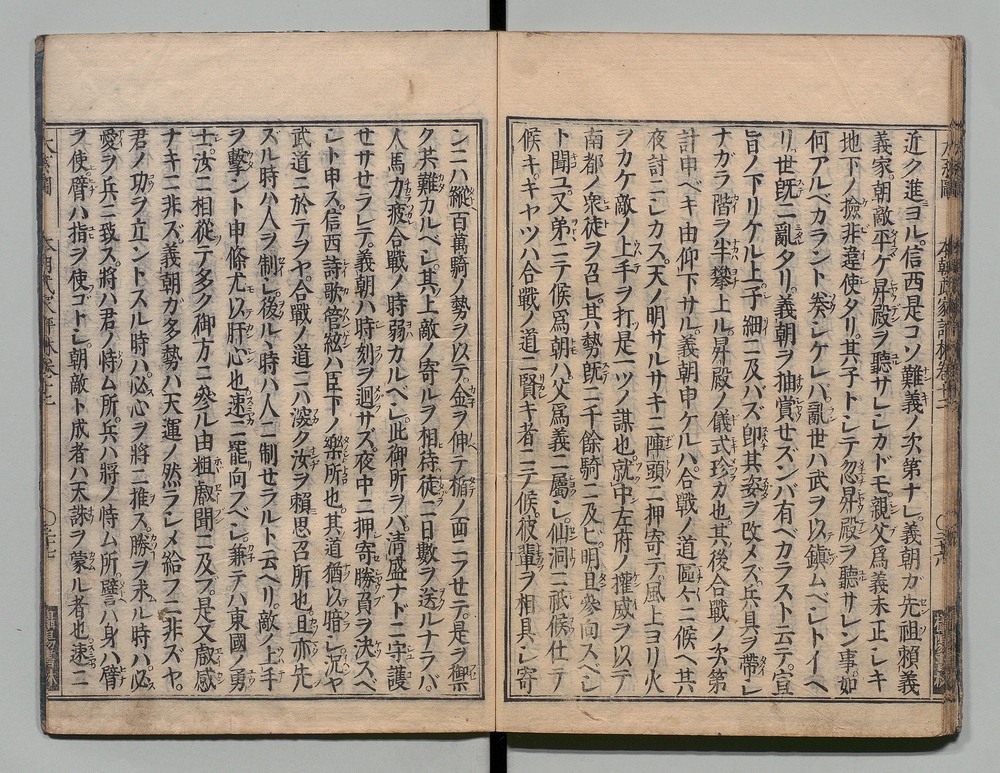 近ク進ヨル信西是コソ難義ノ次第ナレ義朝ガ先祖頼義
義家朝敵平ケ昇殿ヲ聽サレシカドモ親父爲義未正シキ
地下ノ撿非違使タリ其子トシテ忽昇殿ヲ聽サレン事如
何アルベカラント奏シケレハ亂世ハ武ヲ以鎮ムベシトイヘ
リ世既ニ亂タリ義朝ヲ抽賞セズンバ有ベカラスト云テ宣
旨ノ下リケル上子細ニ及バズ卽其姿ヲ改メズ兵具ヲ帶シ
ナガラ階ヲ半攀上ル昇殿ノ儀式珍カ也其後合戰ノ次第
計申ベキ由仰下サル義朝申ケルハ合戰ノ道區々ニ候ヘ共
夜討ニシカス天ノ明サルサキニ陣頭ニ押寄テ風上ヨリ火
ヲカケ敵ノ上手ヲ打是一ツノ謀也就中左府ノ權威ヲ以テ
南都ノ衆徒ヲ召シ其勢既ニ千餘騎ニ及ヒ明旦參向スベシ
ト聞ユ又弟ニテ候爲朝ハ父爲義ニ屬シ仙洞ニ祇候仕テ
候キキヤツハ合戰ノ道ニ賢キ者ニテ候彼輩ヲ相具シ寄
本朝武家評林卷十二
ンニハ縱百萬騎ノ勢ヲ以テ金ヲ伸テ楯ノ面ニフセテ是ヲ禦
ク共難カルベシ其上敵ノ寄ルヲ相待徒ニ日數ヲ送ルナラハ
人馬力疲合戰ノ時弱カルベシ此御所ヲバ清盛ナドニ守護
セサセラレテ義朝ハ時刻ヲ廻サズ夜中ニ押寄勝負ヲ決スベ
シト申ス信西詩歌管絃ハ臣下ノ樂所也其道猶以暗シ況ヤ
武道ニ於テヲヤ合戰ノ道ニハ深ク汝ヲ頼思召所也且亦先
ズル時ハ人ヲ制シ後ルヽ時ハ人ニ制セラルト云ヘリ敵ノ上手
ヲ撃ント申條尤以肝心也速ニ罷向スベシ兼テハ東國ノ勇
士汝ニ相從テ多ク御方ニ參ル由粗叡聞ニ及ブ是又叡感
ナキニ非ズ義朝ガ多勢ハ天運ノ然ラシメ給フニ非ズヤ
君ノ功ヲ立ントスル時ハ必心ヲ將ニ推ス勝ヲ求ル時ハ必
愛ヲ兵ニ致ス將ハ君ノ恃ム所兵ハ將ノ恃ム所譬ハ身ハ臂
ヲ使臂ハ指ヲ使ゴトシ朝敵ト成者ハ天誅ヲ蒙ル者也速ニ
本朝武家評林卷十二